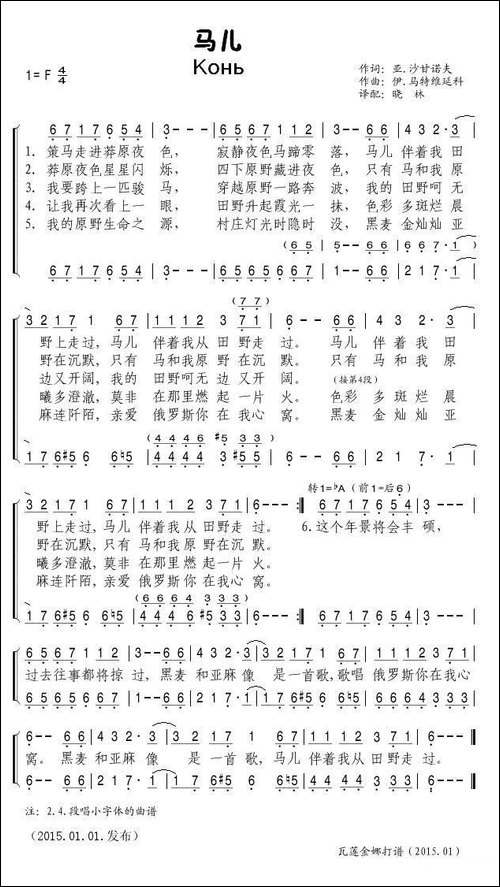 马儿
Конь
1=F 4/4
作词：亚.沙甘诺夫
作曲：伊.马特维延科
译配：晓 林
6 7 1 7 6 5 4 | 3 - - - | 6 5 6 7 1 1 2 | 3 - - 6 7 | 1 - - 6 | 4 3 2 · 3 |
1. 策马走进莽原夜 色， 寂静夜色马蹄零 落，马儿 伴着我 田
2. 莽原夜色星星闪 烁， 四下原野藏进夜 色，只有 马和我 原
3. 我要跨上一匹骏 马， 穿越原野一路奔 波，我的 田野呵 无
4. 让我再次看上一 眼， 田野升起霞光一 抹，色彩 多斑烂 晨
5. 我的原野生命之 源， 村庄灯光时隐时 没，黑麦 金灿灿 亚
(6 5 | 5 - - 6 | 6 6 7 · 1 )
6 7 1 7 6 5 4 | 3 - - - | 6 5 6 7 1 7 6 | 3 - - 6 7 | 1 - - 6 | 2 1 7 · 1 |
(7 7)
3 2 1 7 1 6 7 | 1 1 1 2 3 7 1 | 6 - - 6 7 | 1 - - 6 | 4 3 2 · 3 |
野上走过，马儿 伴着我从田野走 过。 马儿 伴着我 田
野在沉默，只有 马和我原野在沉 默。 只有 马和我 原
边又开阔，我的 田野呵无边又开 阔。 (接第4段)
曦多澄澈，莫非 在那里燃起一片 火。 色彩 多斑烂 晨
麻连阡陌，亲爱 俄罗斯你在我心 窝。 黑麦 金灿灿 亚
(4 4 4 6 #5 3 3)
1 7 6 #5 6 6 ♮5 | 4 4 4 6 #5 3 3 | 6 - - 6 7 | 1 - - 6 | 2 1 7 · 1 |
转1=♭A（前1=后6）
3 2 1 7 1 6 7 | 1 1 1 2 3 7 1 | 6 - - - :| 6 7 1 7 6 5 4 | 3 - - - |
野上走过，马儿 伴着我从田野走 过。 6.这个年景将会丰 硕，
野在沉默，只有 马和我原野在沉 默。
曦多澄澈，莫非 在那里燃起一片 火。
麻连阡陌，亲爱 俄罗斯你在我心 窝。
(6 6 6 4 3 3 3)
1 7 6 #5 6 6 ♮5 | 4 4 4 6 #5 #5 #5 | 6 - - - :| 6 7 1 7 6 5 4 | 3 - - - |
6 5 6 7 1 1 2 | 3 - - 6 7 | 1 - - 6 | 4 3 2 · 3 | 3 2 1 7 1 6 7 | 1 1 1 2 3 7 1 |
过去往事都将掠 过，黑麦 和亚麻像 是一首歌，歌唱 俄罗斯你在我心
6 5 6 5 3 5 5 | 6 - - 6 6 | 2 1 7 · 1 | 1 7 6 #5 6 6 ♮5 | 4 4 4 6 #5 3 3 |
6 - - 6 7 | 1 - - 6 | 4 3 2 · 3 | 3 2 1 7 1 6 7 | 1 1 1 2 3 7 1 | 6 - - - ||
窝。 黑麦 和亚麻 像 是一首 歌，马儿 伴着我从田野走 过。
6 - - 6 7 | 1 - - 6 | 2 1 7 · 1 | 1 7 #5 6 6 ♮5 | 4 4 4 6 #5 3 3 | 6 - - - ||
注：2.4.段唱小字体的曲谱
(2015.01.01.发布)
瓦莲金娜打谱(2015.01)